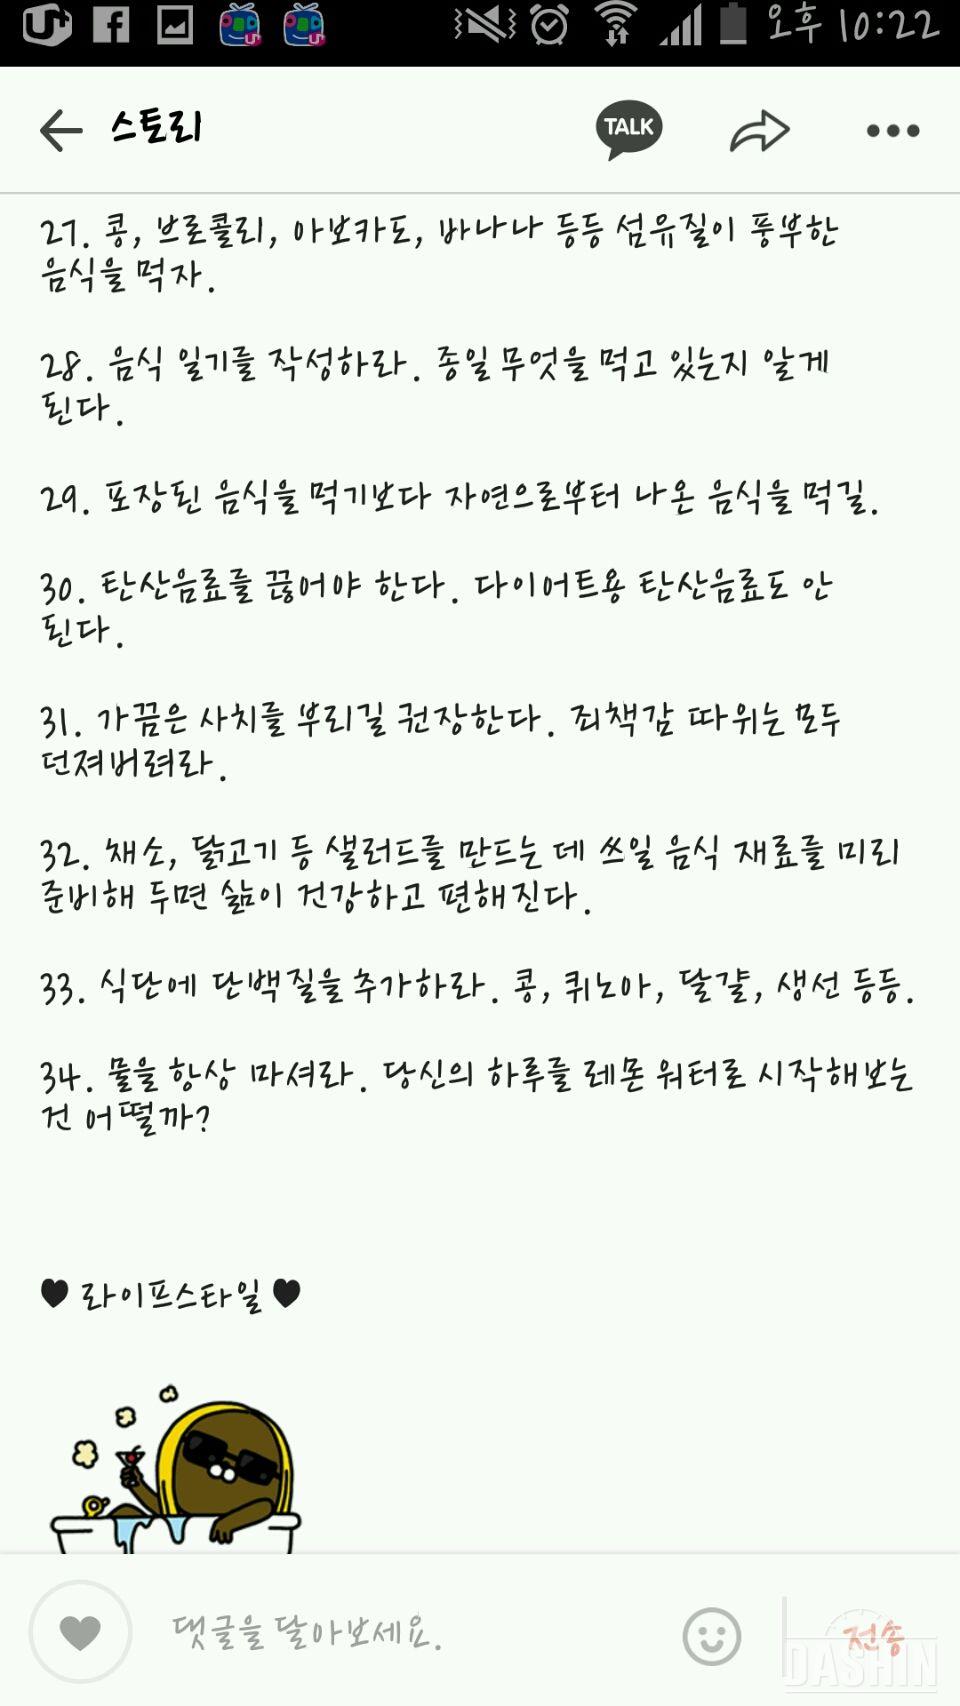 오후 10:22
스토리
TALK
27. 콩, 브로콜리, 아보카도, 바나나 등등 섬유질이 풍부한
음식을 먹자.
28. 음식 일기를 작성하라. 종일 무엇을 먹고 있는지 알게
된다.
29. 포장된 음식을 먹기보다 자연으로부터 나온 음식을 먹길.
30. 탄산음료를 끊어야 한다. 다이어트용 탄산음료도 안
된다.
31. 가끔은 사치를 부리길 권장한다. 죄책감 따위는 모두
던져버려라.
32. 채소, 닭고기 등 샐러드를 만드는 데 쓰일 음식 재료를 미리
준비해 두면 삶이 건강하고 편해진다.
33. 식단에 단백질을 추가하라. 콩, 퀴노아, 달걀, 생선 등등.
34. 물을 항상 마셔라. 당신의 하루를 레몬 워터로 시작해보는
건 어떨까?
♥ 라이프스타일 ♥
댓글을 달아보세요.
전송
DASHIN